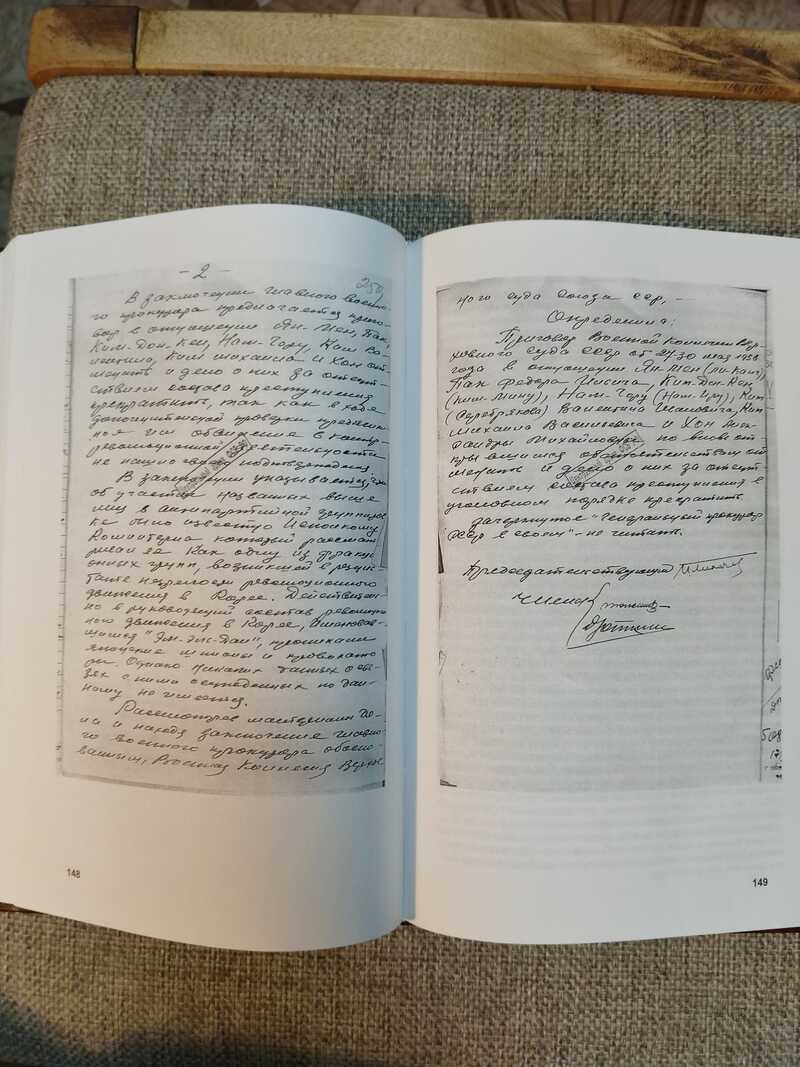 - 2 -
250
В заключении главного военно-
го прокурора предлагается приго-
вор в отношении Ян-Мен, Пак,
Ким-Дон-Кен, Нам-Чору, Ким Ва-
лентина, Ким Михаила и Хон от-
менить и дело о них за отсут-
ствием состава преступления
прекратить, так как в ходе
дополнительной проверки предъявлен-
ное им обвинение в контр-
революционной деятельности
не нашло своего подтверждения.
В заключении указывается, что
об участии названных выше
лиц в антипартийной группиров-
ке было известно Исполкому
Коминтерна, который рассмат-
ривал ее как одну из фракци-
онных групп, возникшей в резуль-
тате незрелости революционного
движения в Корее. Действитель-
но в руководящий состав революцион-
ного движения в Корее, именовав-
шийся "Эм-Эль-Дан", проникали
японские шпионы и провокато-
ры. Однако никаких данных о свя-
зях с ними осужденных по дан-
ному не имеется.
Рассмотрев материалы де-
ла и находя заключение главно-
го военного прокурора обосно-
ванным, Военная Коллегия Верхов-
148
ного Суда Союза ССР, -
Определила:
Приговор Военной Коллегии Вер-
ховного Суда СССР от 27-30 мая 1938
года в отношении Ян-Мен (Ли-Каю),
Пак Федора Ильича, Ким-Дон-Кен
(Ким-Мину), Нам-Чору (Нам-Цру), Ким
(Серебрякова) Валентина Ивановича, Ким
Михаила Васильевича и Хон Алек-
сандры Михайловны по вновь от-
крывшимся обстоятельствам от-
менить и дело о них за отсут-
ствием состава преступления в
уголовном порядке прекратить.
Зачеркнутое "Генеральный прокурор
СССР в своем" - не читать.
Председательствующий
Члены
149